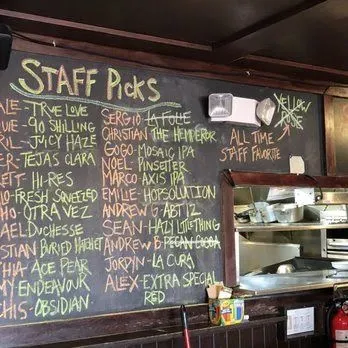 STAFF PICKS
ALE - TRUE LOVE
UE - 90 SHILLING
RIL - JUICY HAZE
ER - TEJAS CLARA
ETT - HI-RES
LO - FRESH SQUEEZED
HO - OTRA VEZ
AEL - DUCHESSE
STIAN BURIED HATCHET
HIA - ACE PEAR
MY ENDEAVOUR
CHIS - OBSIDIAN
SERGIO - LA FOLIE
CHRISTIAN THE HEMPEROR
GOGO - MOSAIC IPA
NOEL - PINSETTER
MARCO - AXIS IPA
EMILIE - HOPSOLUTION
ANDREW G - ABT 12
SEAN - HAZY LITTLE THING
ANDREW B - PECAN
JORDYN - LA CURA
ALEX - EXTRA SPECIAL
RED
YELLOW
ROSE
ALL TIME
STAFF FAVORITE